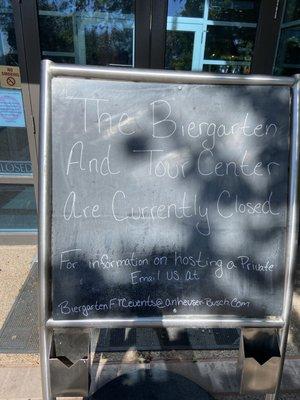 NO SMOKING
CLOSED
The Biergarten
And Tour Center
Are Currently Closed
For information on hosting a Private
Email us at
BiergartenFTCevents@anheuser-Busch.com